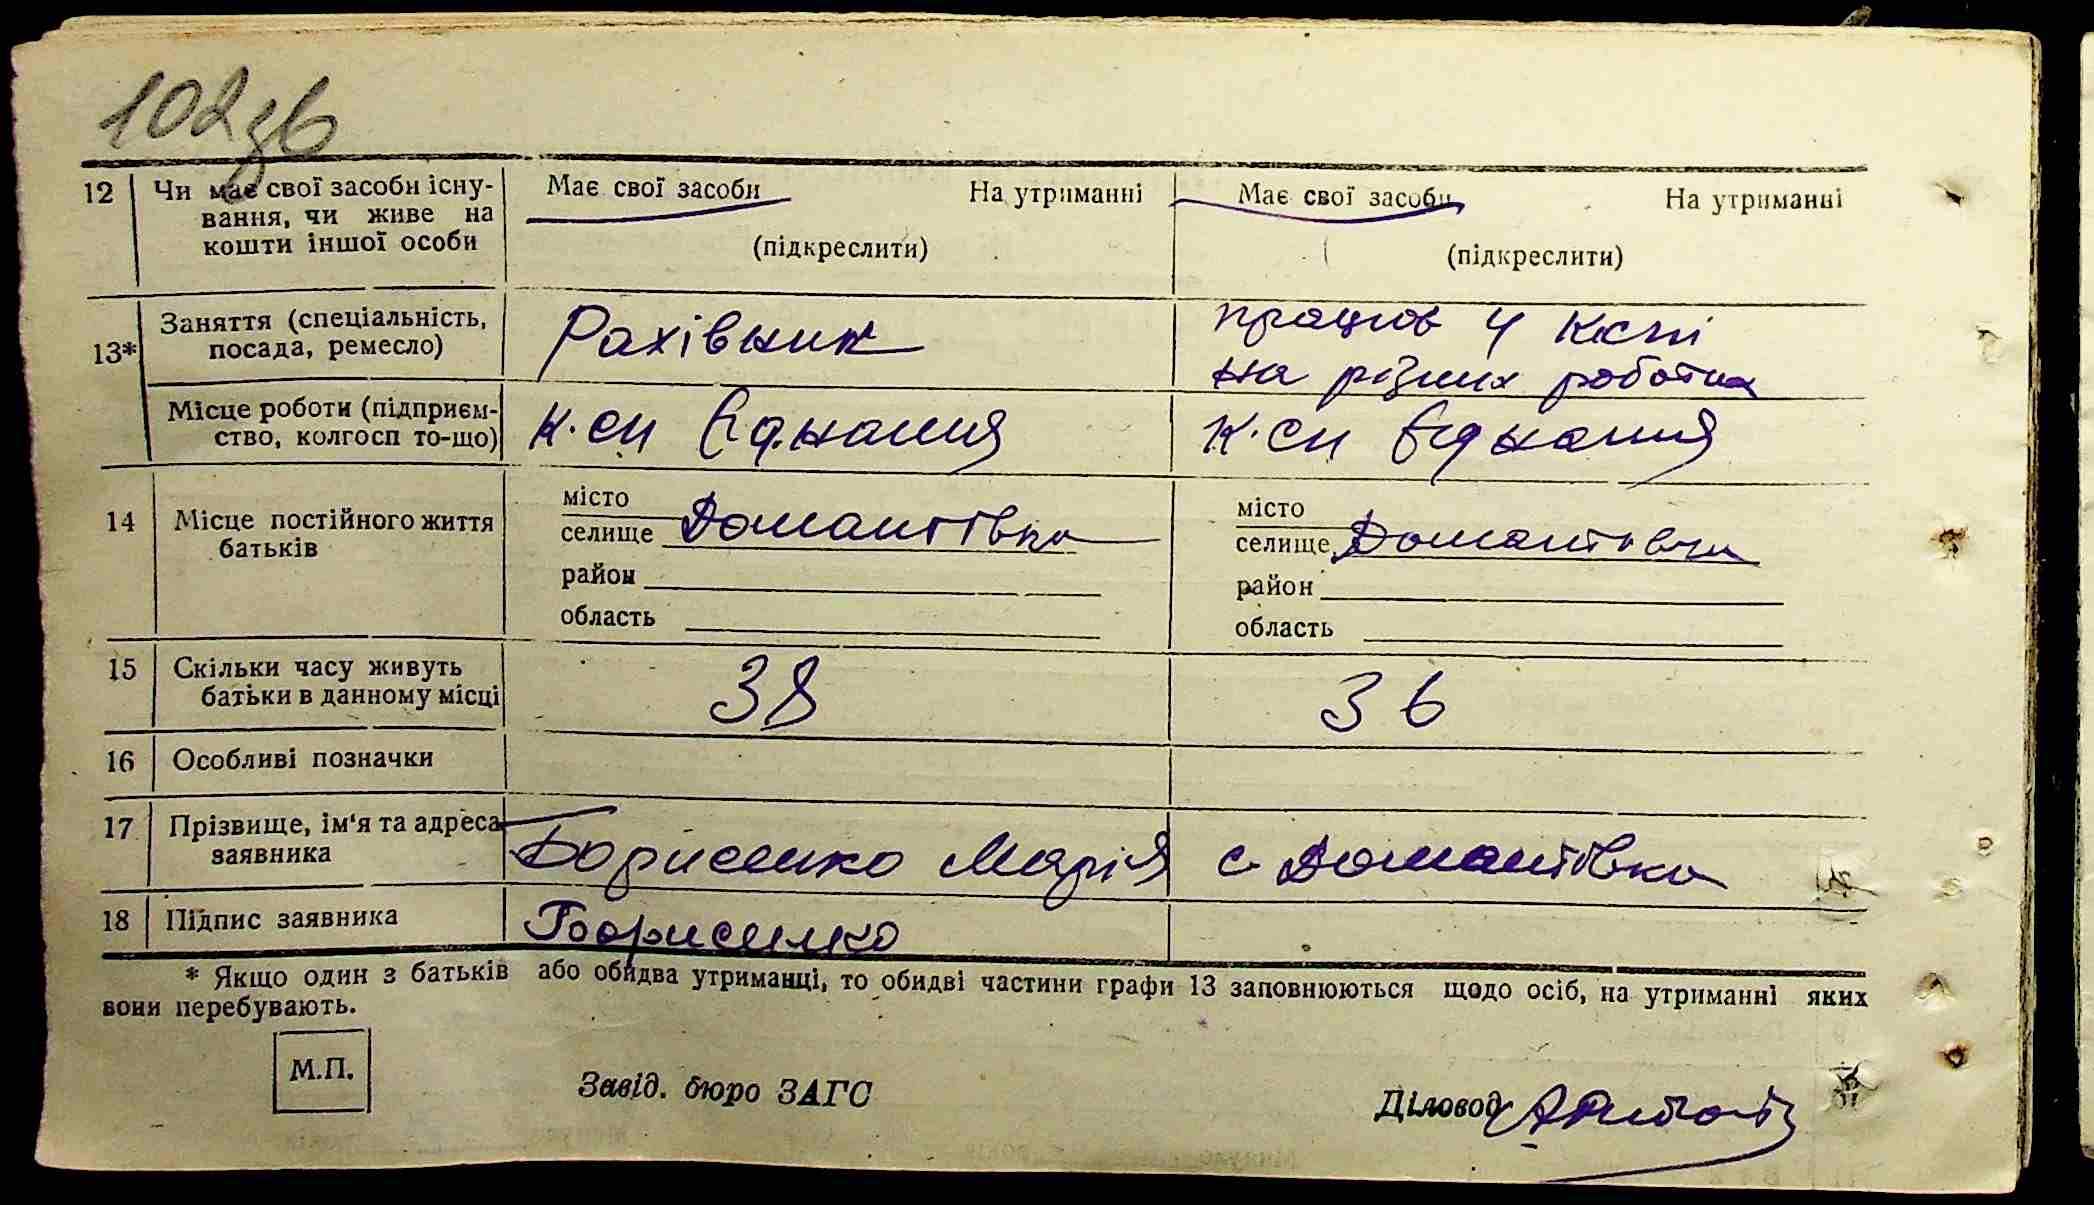 102 зв
12 Чи має свої засоби існу- Має свої засоби На утриманні Має свої засоби На утриманні
вання, чи живе на
кошти іншої особи (підкреслити) (підкреслити)
13* Заняття (спеціальність, посада, ремесло) Рахівник працює у Кспі
на різних роботах
Місце роботи (підприєм- К.сп Єднання К.сп Єднання
ство, колгосп то-що)
14 Місце постійного життя батьків
місто місто
селище Домантівка селище Домантівка
район район
область область
15 Скільки часу живуть 38 36
батьки в данному місці
16 Особливі позначки
17 Прізвище, ім'я та адреса Борисенко Марія с. Домантівка
заявника
18 Підпис заявника Борисенко
* Якщо один з батьків або обидва утриманці, то обидві частини графи 13 заповнюються щодо осіб, на утриманні яких
вони перебувають.
М.П. Завід. бюро ЗАГС Діловод